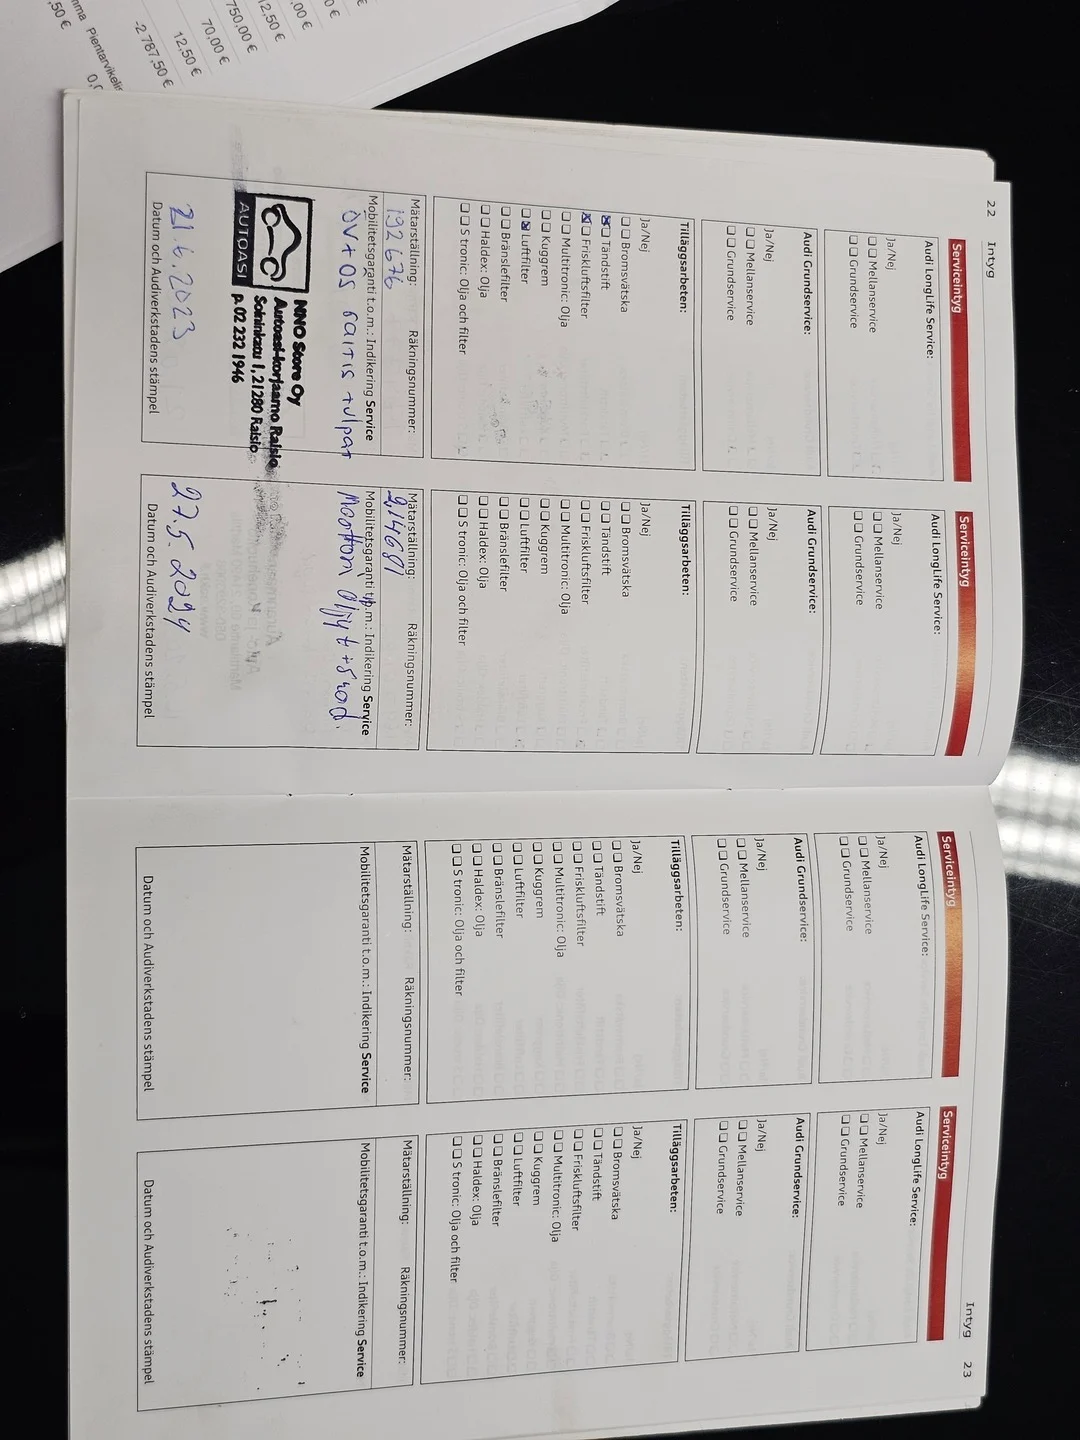 22 Intyg
Serviceintyg
Audi LongLife Service:
Ja/Nej
☐ ☐ Mellanservice
☐ ☐ Grundservice
Audi Grundservice:
Ja/Nej
☐ ☐ Mellanservice
☐ ☐ Grundservice
Tilläggsarbeten:
Ja/Nej
☐ ☐ Bromsvätska
☒ ☐ Tändstift
☒ ☐ Friskluftsfilter
☐ ☐ Multitronic: Olja
☐ ☐ Kuggrem
☐ ☒ Luftfilter
☐ ☐ Bränslefilter
☐ ☐ Haldex: Olja
☐ ☐ S tronic: Olja och filter
Mätarställning: Räkningsnummer:
192676
Mobilitetsgaranti t.o.m.: Indikering Service
ÖV+OS raitis tulpat
NNO Store Oy
Autoasi-korjaamo Raisio
Solninkatu 1, 21280 Raisio
p. 02 232 1946
AUTOASI
21.6.2023
Datum och Audiverkstadens stämpel
Serviceintyg
Audi LongLife Service:
Ja/Nej
☐ ☐ Mellanservice
☐ ☐ Grundservice
Audi Grundservice:
Ja/Nej
☐ ☐ Mellanservice
☐ ☐ Grundservice
Tilläggsarbeten:
Ja/Nej
☐ ☐ Bromsvätska
☐ ☐ Tändstift
☐ ☐ Friskluftsfilter
☐ ☐ Multitronic: Olja
☐ ☐ Kuggrem
☐ ☐ Luftfilter
☐ ☐ Bränslefilter
☐ ☐ Haldex: Olja
☐ ☐ S tronic: Olja och filter
Mätarställning: Räkningsnummer:
214681
Mobilitetsgaranti t.o.m.: Indikering Service
Moottori öljyt+suod.
27.5.2024
Datum och Audiverkstadens stämpel
Serviceintyg
Audi LongLife Service:
Ja/Nej
☐ ☐ Mellanservice
☐ ☐ Grundservice
Audi Grundservice:
Ja/Nej
☐ ☐ Mellanservice
☐ ☐ Grundservice
Tilläggsarbeten:
Ja/Nej
☐ ☐ Bromsvätska
☐ ☐ Tändstift
☐ ☐ Friskluftsfilter
☐ ☐ Multitronic: Olja
☐ ☐ Kuggrem
☐ ☐ Luftfilter
☐ ☐ Bränslefilter
☐ ☐ Haldex: Olja
☐ ☐ S tronic: Olja och filter
Mätarställning: Räkningsnummer:
Mobilitetsgaranti t.o.m.: Indikering Service
Datum och Audiverkstadens stämpel
Intyg 23
Serviceintyg
Audi LongLife Service:
Ja/Nej
☐ ☐ Mellanservice
☐ ☐ Grundservice
Audi Grundservice:
Ja/Nej
☐ ☐ Mellanservice
☐ ☐ Grundservice
Tilläggsarbeten:
Ja/Nej
☐ ☐ Bromsvätska
☐ ☐ Tändstift
☐ ☐ Friskluftsfilter
☐ ☐ Multitronic: Olja
☐ ☐ Kuggrem
☐ ☐ Luftfilter
☐ ☐ Bränslefilter
☐ ☐ Haldex: Olja
☐ ☐ S tronic: Olja och filter
Mätarställning: Räkningsnummer:
Mobilitetsgaranti t.o.m.: Indikering Service
Datum och Audiverkstadens stämpel
750,00 €
12,50 €
70,00 €
12,50 €
-2 787,50 €